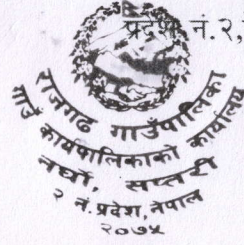 प्रदेश नं.२,
राजगढ गाउँपालिका
गाउँ कार्यपालिकाको कार्यालय
नर्घो, सप्तरी
२ नं.प्रदेश, नेपाल
२०७५